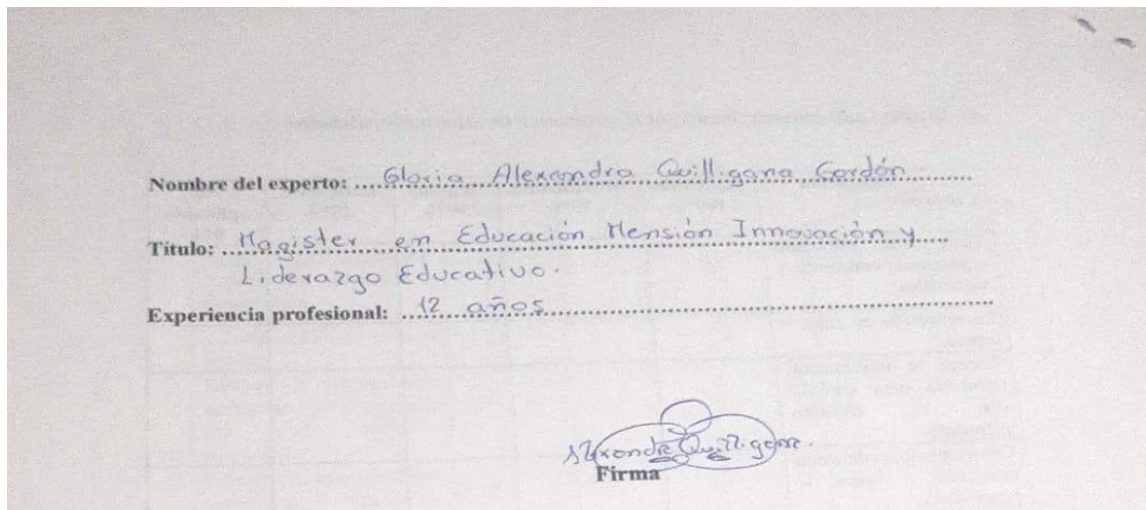 Nombre del experto: .... Gloria Alexandra Quilligana Gordón
Título: Magister en Educación Mensión Innovación y
Liderazgo Educativo.
Experiencia profesional: 12 años
Alexandra Quilligana.
Firma